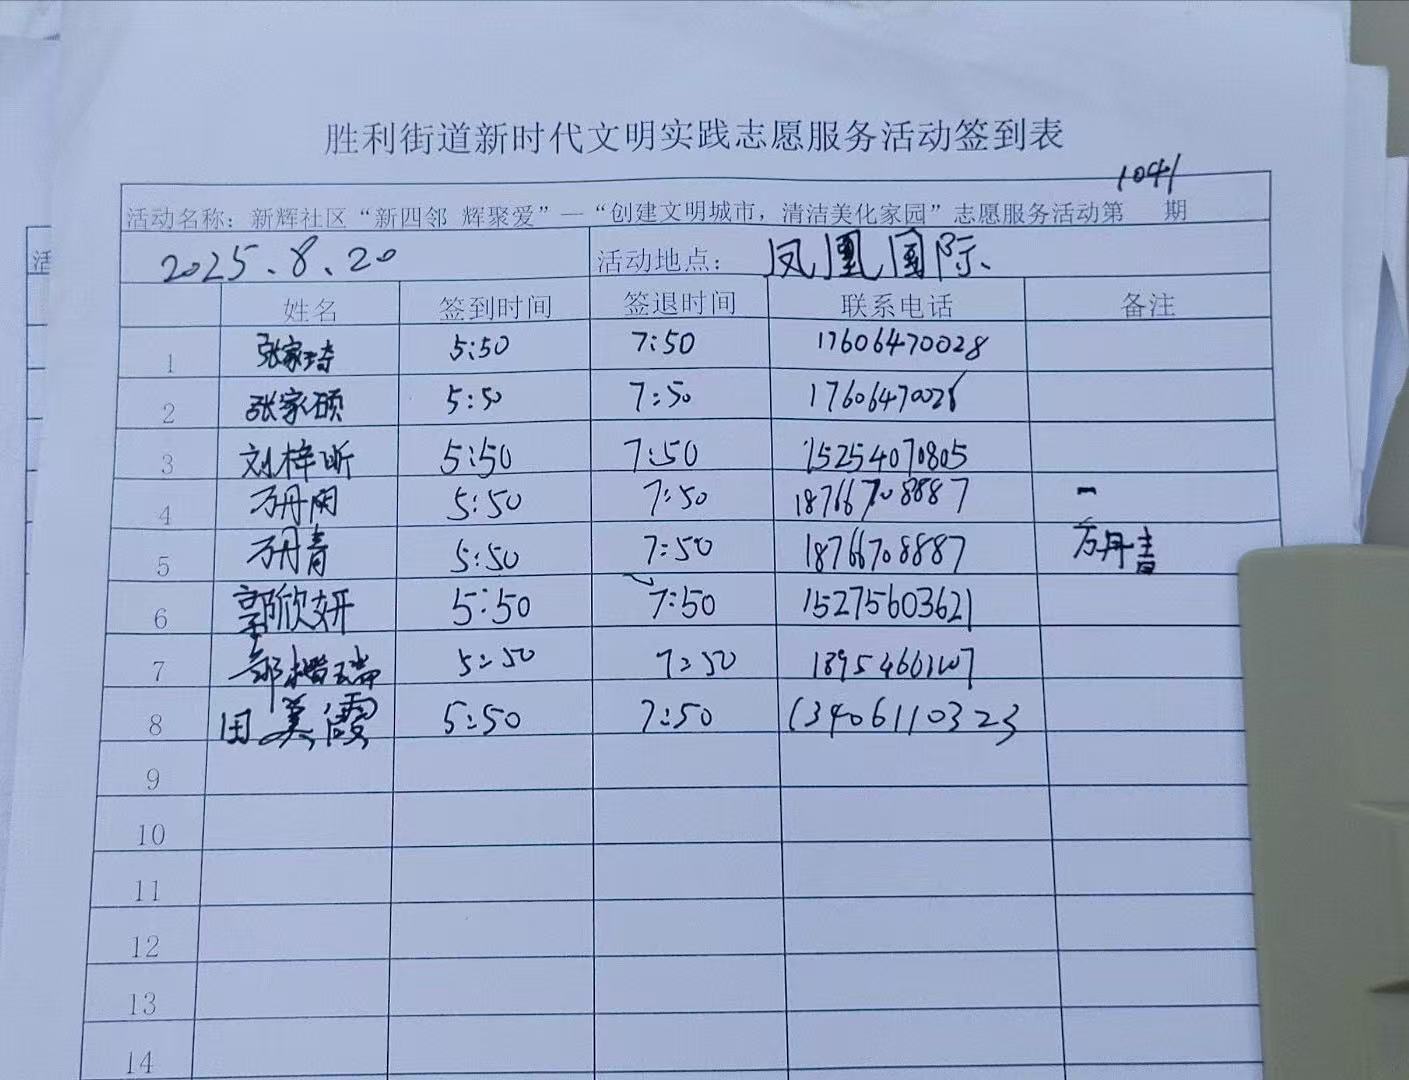 胜利街道新时代文明实践志愿服务活动签到表
1041
活动名称：新辉社区“新四邻 辉聚爱”—“创建文明城市，清洁美化家园”志愿服务活动第 期
2025.8.20 活动地点：凤凰国际
姓名 签到时间 签退时间 联系电话 备注
1 张家琦 5:50 7:50 17606470028
2 张家硕 5:50 7:50 17606470028
3 刘梓昕 5:50 7:50 15254070805
4 万丹阳 5:50 7:50 18766708887 -
5 万丹青 5:50 7:50 18766708887 万丹青
6 郭欣妍 5:50 7:50 15275603621
7 5:50 7:50
8 田美霞 5:50 7:50 13406110323
9
10
11
12
13
14
活